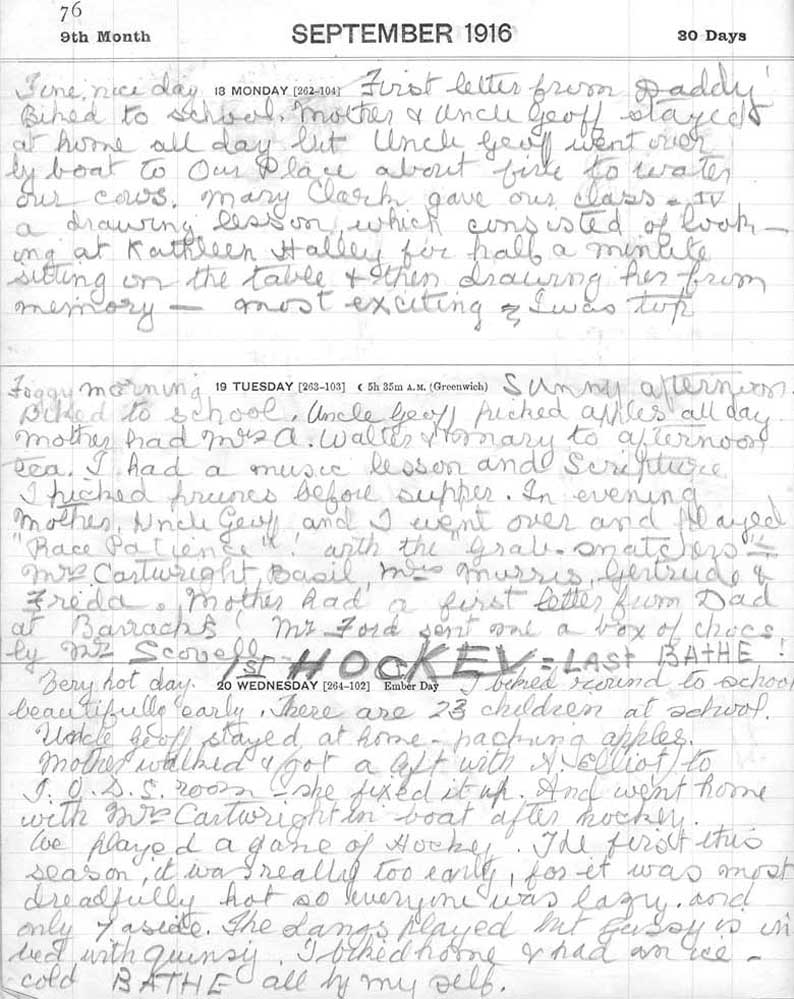 76
9th Month SEPTEMBER 1916 30 Days
Fine, nice day 18 MONDAY [262-104] First letter from Daddy!
Biked to school. Mother & Uncle Geoff stayed
at home all day but Uncle Geoff went over
by boat to Our Place about five to water
our cows. Mary Clark gave our class - IV
a drawing lesson which consisted of look-
ing at Kathleen Halley for half a minute
sitting on the table & then drawing her from
memory — most exciting & I was top
Foggy morning 19 TUESDAY [263-103] ☾ 5h 35m A.M. (Greenwich) Sunny afternoon.
Biked to school. Uncle Geoff picked apples all day
Mother had Mrs A. Walter & Mary to afternoon
tea. I had a music lesson and Scripture
I picked prunes before supper. In evening
Mother, Uncle Geoff and I went over and played
"Race Patience"! with the "Grab-snatchers" =
Mrs Cartwright, Basil, Mrs Murris, Gertrude &
Freda. Mother had a first letter from Dad
at Barracks! Mr Ford sent me a box of chocs!
by Mr Scovell 1ST HOCKEY = LAST BATHE!
Very hot day. 20 WEDNESDAY [264-102] Ember Day I biked round to school
beautifully early. There are 23 children at school.
Uncle Geoff stayed at home - packing apples.
Mother walked & got a lift with A. Elliot to
I.O.D.E. room - she fixed it up. And went home
with Mrs Cartwright in boat after hockey.
We played a game of Hockey. The first this
season, it was really too early, for it was most
dreadfully hot so everyone was lazy. and
only 7 aside. The Langs played but Gussy is in
bed with quinsy. I biked home & had an ice-
cold BATHE all by my self.